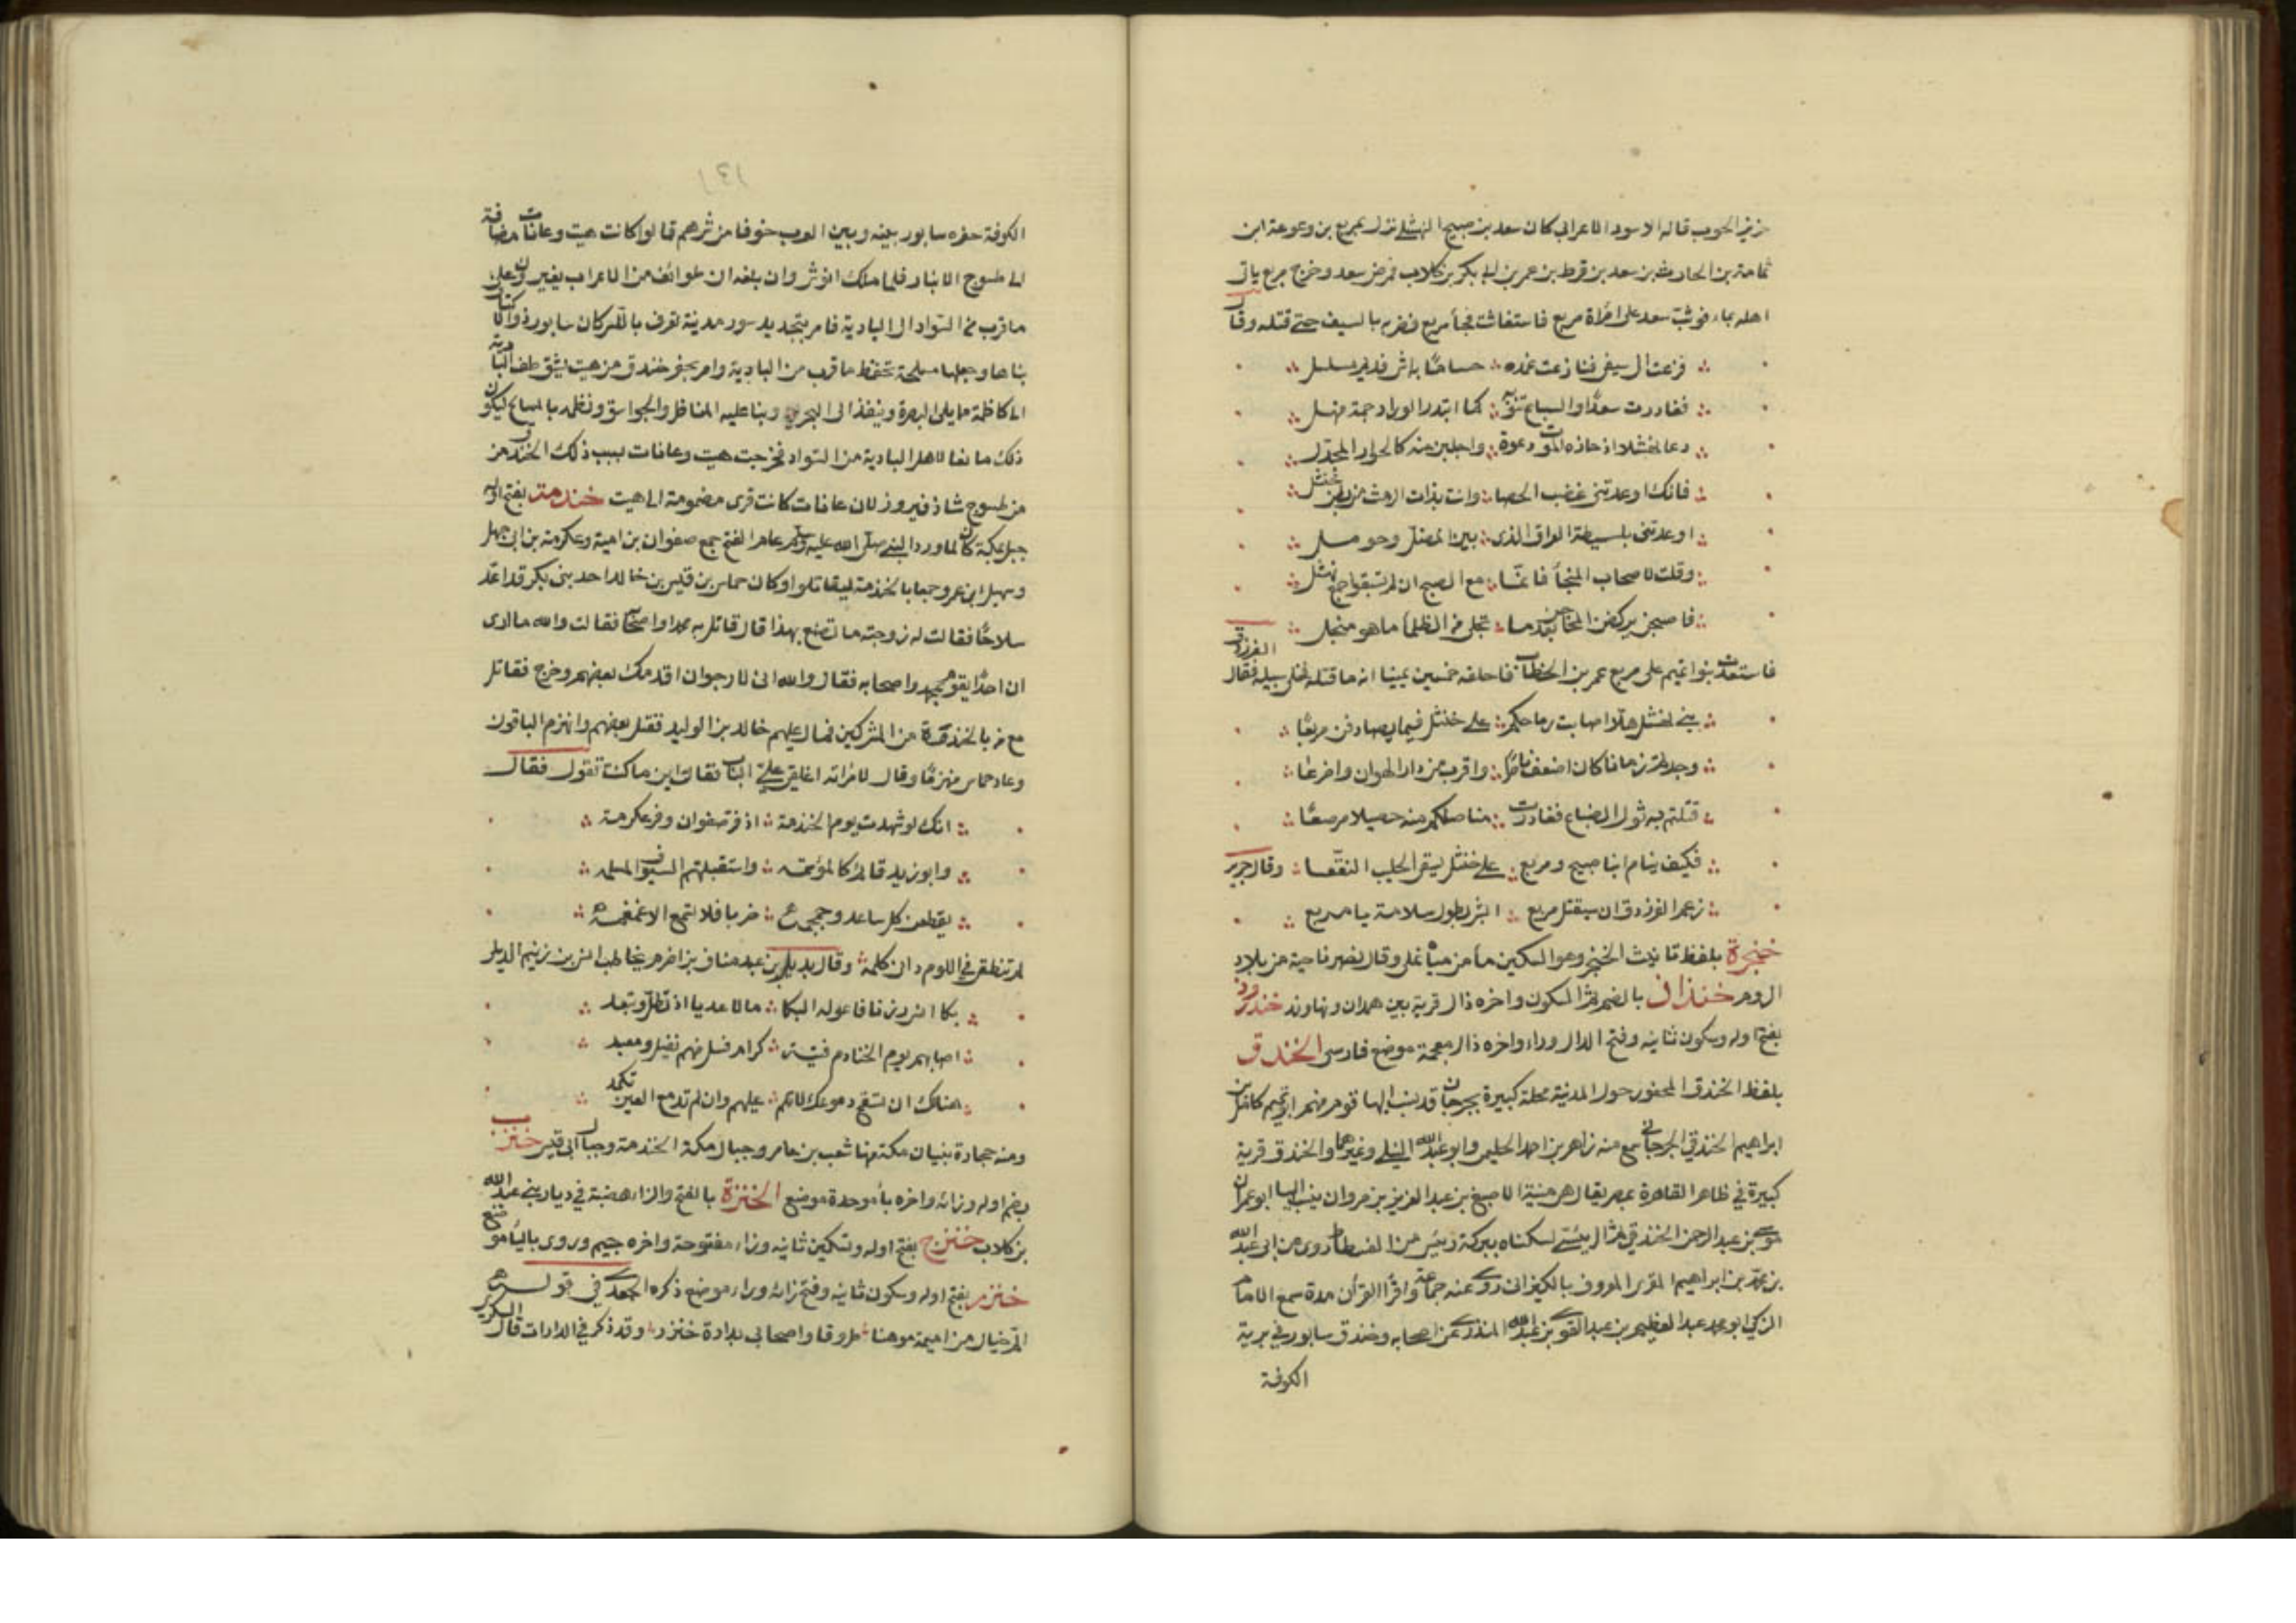 عزيز الجوب قاله الاسود الاعرابي كان سعد بن صبيح النهشلي نزل بمربع بن وعوعة ابن
ثمامة بن الحارث بن سعد بن قرط بن عمر بن ابي بكر بن كلاب فمرض سعد وخرج مربع ياتي
اهله بماء فوثب سعد على امراة مربع فاستغاثت فجأ مربع فضربه بالسيف حتى قتله وقال
فزعت الى سيفي فنازعت غمده حساما به اثر قديم مسلسل
فغادرت سعدا والسباع تنوبه كما ابتدر الوراد جمة منهل
دعا نهشلا اذ حازه الموت دعوة واجلين منه كالحوار المجدل
فانك اوعدتني غضب الحصا وانت بذات الرمث من بطن خنثل
اوعدتني بالبسيطة الذى بين المضل وحومل
وقلت لاصحاب النجأ فانما مع الصبح ان لم تسبقوا جمع نهشل
فاصبحن يركضن المحاجن بعدما تجلى من الظلمأ ما هو منجل
فاستعدت بنوا تميم على مربع عمر بن الخطاب فاحلفه خمسين يمينا انه ما قتله فخلى سبيله فقال الفرزدق
بني نهشل هلا اصابت رماحكم على خنثل فيما يصادفن مربعا
وجدتم زمانا كان اضعف ناصرا واقرب من دار الهوان واضرعا
قتلتم به ثول الضباع فغادرت مناصلكم منه خصيلا مرصعا
فكيف ينام ابنا صبيح ومربع على خنثل يسقى الحليب المنقعا وقال جرير
زعم الفرزدق ان سيقتل مربع ابشر بطول سلامة يا مربع
خنجرة بلفظ تانيث الخنجر وهو السكين مأ من مياه نملى وقال نصر ناحية من بلاد
الروم خنداذ بالضم ثم السكون واخره ذال قرية بين همدان ونهاوند خندروذ
بفتح اوله وسكون ثانيه وفتح الدال وراء واخره ذال معجمة موضع فارسي الخندق
بلفظ الخندق المحفور حول المدينة محلة كبيرة بجرجان قد نسب اليها قوم منهم ابو تميم كامل بن
ابراهيم الخندقي الجرجاني سمع منه زاهر بن احمد الحليمي وابو عبدالله النيلي وغيرهما والخندق قرية
كبيرة في ظاهر القاهرة بمصر يقال هي منية الاصبغ بن عبد العزيز بن مروان ينسب اليها ابو عمران
موسى بن عبد الرحمن الخندقي ثم لسكناه ببركة من الفسطاط روى عن ابي عبدالله
بن محمد بن ابراهيم المقرى المعروف بالكيزانى روى عنه جماعة واقرأ القرأن مدة سمع الامام
الزكي ابو محمد عبد العظيم بن عبد القوى بن عبدالله المنذري عن اصحابه وخندق سابور في برية
الكوفة
١٣١
الكوفة حفره سابور بينه وبين العرب خوفا من شرهم قالوا كانت هيت وعانات مضافة
الى طسوج الانبار فلما ملك انوشروان بلغه ان طوائف من الاعراب يغيرون على
ما قرب من السواد الى البادية فامر بتجديد سور مدينة تعرف بالنسر كان سابور ذو الاكتاف
بناها وجعلها مسلحة تحفظ ما قرب من البادية وامر بحفر خندق من هيت يشق طف البادية
الى كاظمة مما يلى البصرة وينفذ الى البحر وبنا عليه المناظر والجواسق ونظمه بالمسالح ليكون
ذلك مانعا لاهل البادية من السواد فخرجت هيت وعانات بسبب ذلك الخندق من
من طسوج شاذ فيروز لان عانات كانت قرى مضمومة الى هيت خندمة بفتح اوله
جبل بمكة كان لما ورد النبى صلى الله عليه وسلم عام الفتح جمع صفوان بن امية وعكرمة بن ابى جهل
وسهيل ابن عمرو جمعا بالخندمة ليقاتلوا وكان حماس بن قيس بن خالد احد بنى بكر قد اعد
سلاحا فقالت له زوجته ما تصنع بهذا قال اقاتل به محمدا واصحابه فقالت والله ما ارى
ان احدا يقوم لمحمد واصحابه فقال والله انى لارجو ان اقدمك بعضهم وخرج فقاتل
مع من بالخندمة من المشركين فمال عليهم خالد بن الوليد فقتل بعضهم وانهزم الباقون
وعاد حماس منهزما وقال لامراته اغلقى علي الباب فقالت اين ما كنت تقول فقال
انك لو شهدت يوم الخندمة اذ فر صفوان وفر عكرمة
وابو زيد قائم كالموتمه واستقبلتهم السيوف المسلمه
يقطعن كل ساعد وجمجمه ضربا فلا تسمع الا غمغمه
لم تنطقى فى اللوم ادنى كلمه وقال بديل بن عبد مناف بن اصرم يخاطب انس بن زنيم الديلى
بكا انس رزنا فاعوله البكا مالا عديا اذ تطل وتبعد
اصابهم يوم الخنادم فتية كرام فسل منهم نفيل ومعبد
هنالك ان تسفح دموعك لاتلم عليهم وان لم تدمع العين تكمد
ومنه حجارة بنيان مكة ومنها شعب بن عامر وجبال مكة الخندمة وجبال ابى قبيس خنزب
بضم اوله وزائه واخره بأ موحدة موضع الخنزة بالفتح والزا هضبة في ديار بني عبدالله
بن كلاب خنزج بفتح اوله وتسكين ثانيه وزاء مفتوحة واخره جيم وروى باليأ موضع
خنزر بفتح اوله وسكون ثانيه وفتح زائه وراء موضع ذكره الجعدى في قوله
الم خيال من اميمة موهنا طروقا واصحابى بدارة خنزر وقد ذكر في الدارات قال السكرى